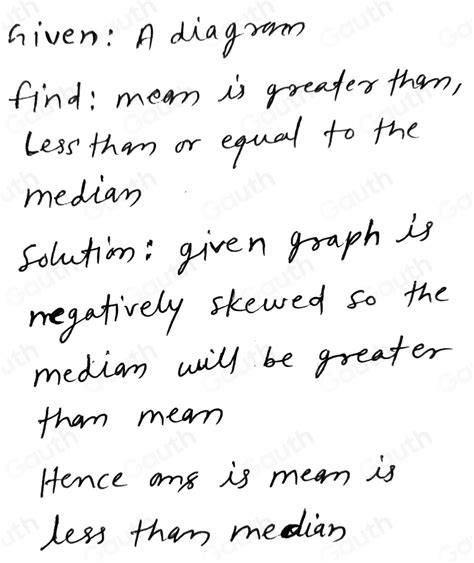 Given: A diagram
find: mean is greater than,
Less than or equal to the
median
Solution: given graph is
negatively skewed so the
median will be greater
than mean
Hence ans is mean is
less than median